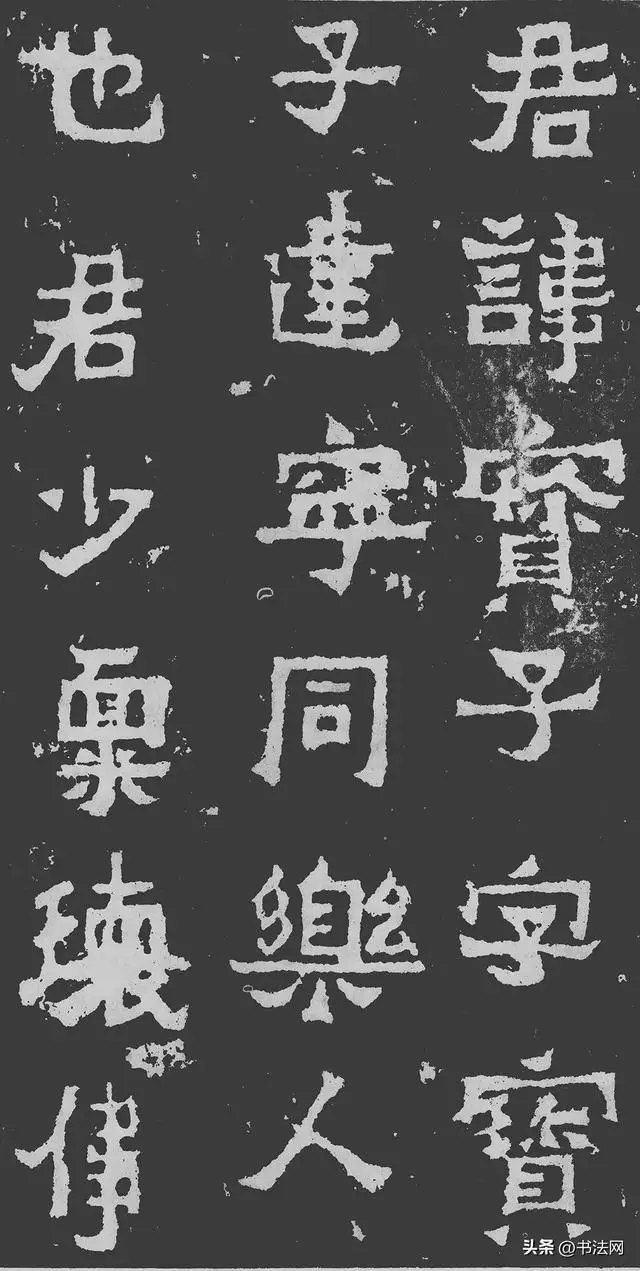 君諱寶子字寶
子建寧同樂人
也君少稟瓌偉
头条 @书法网